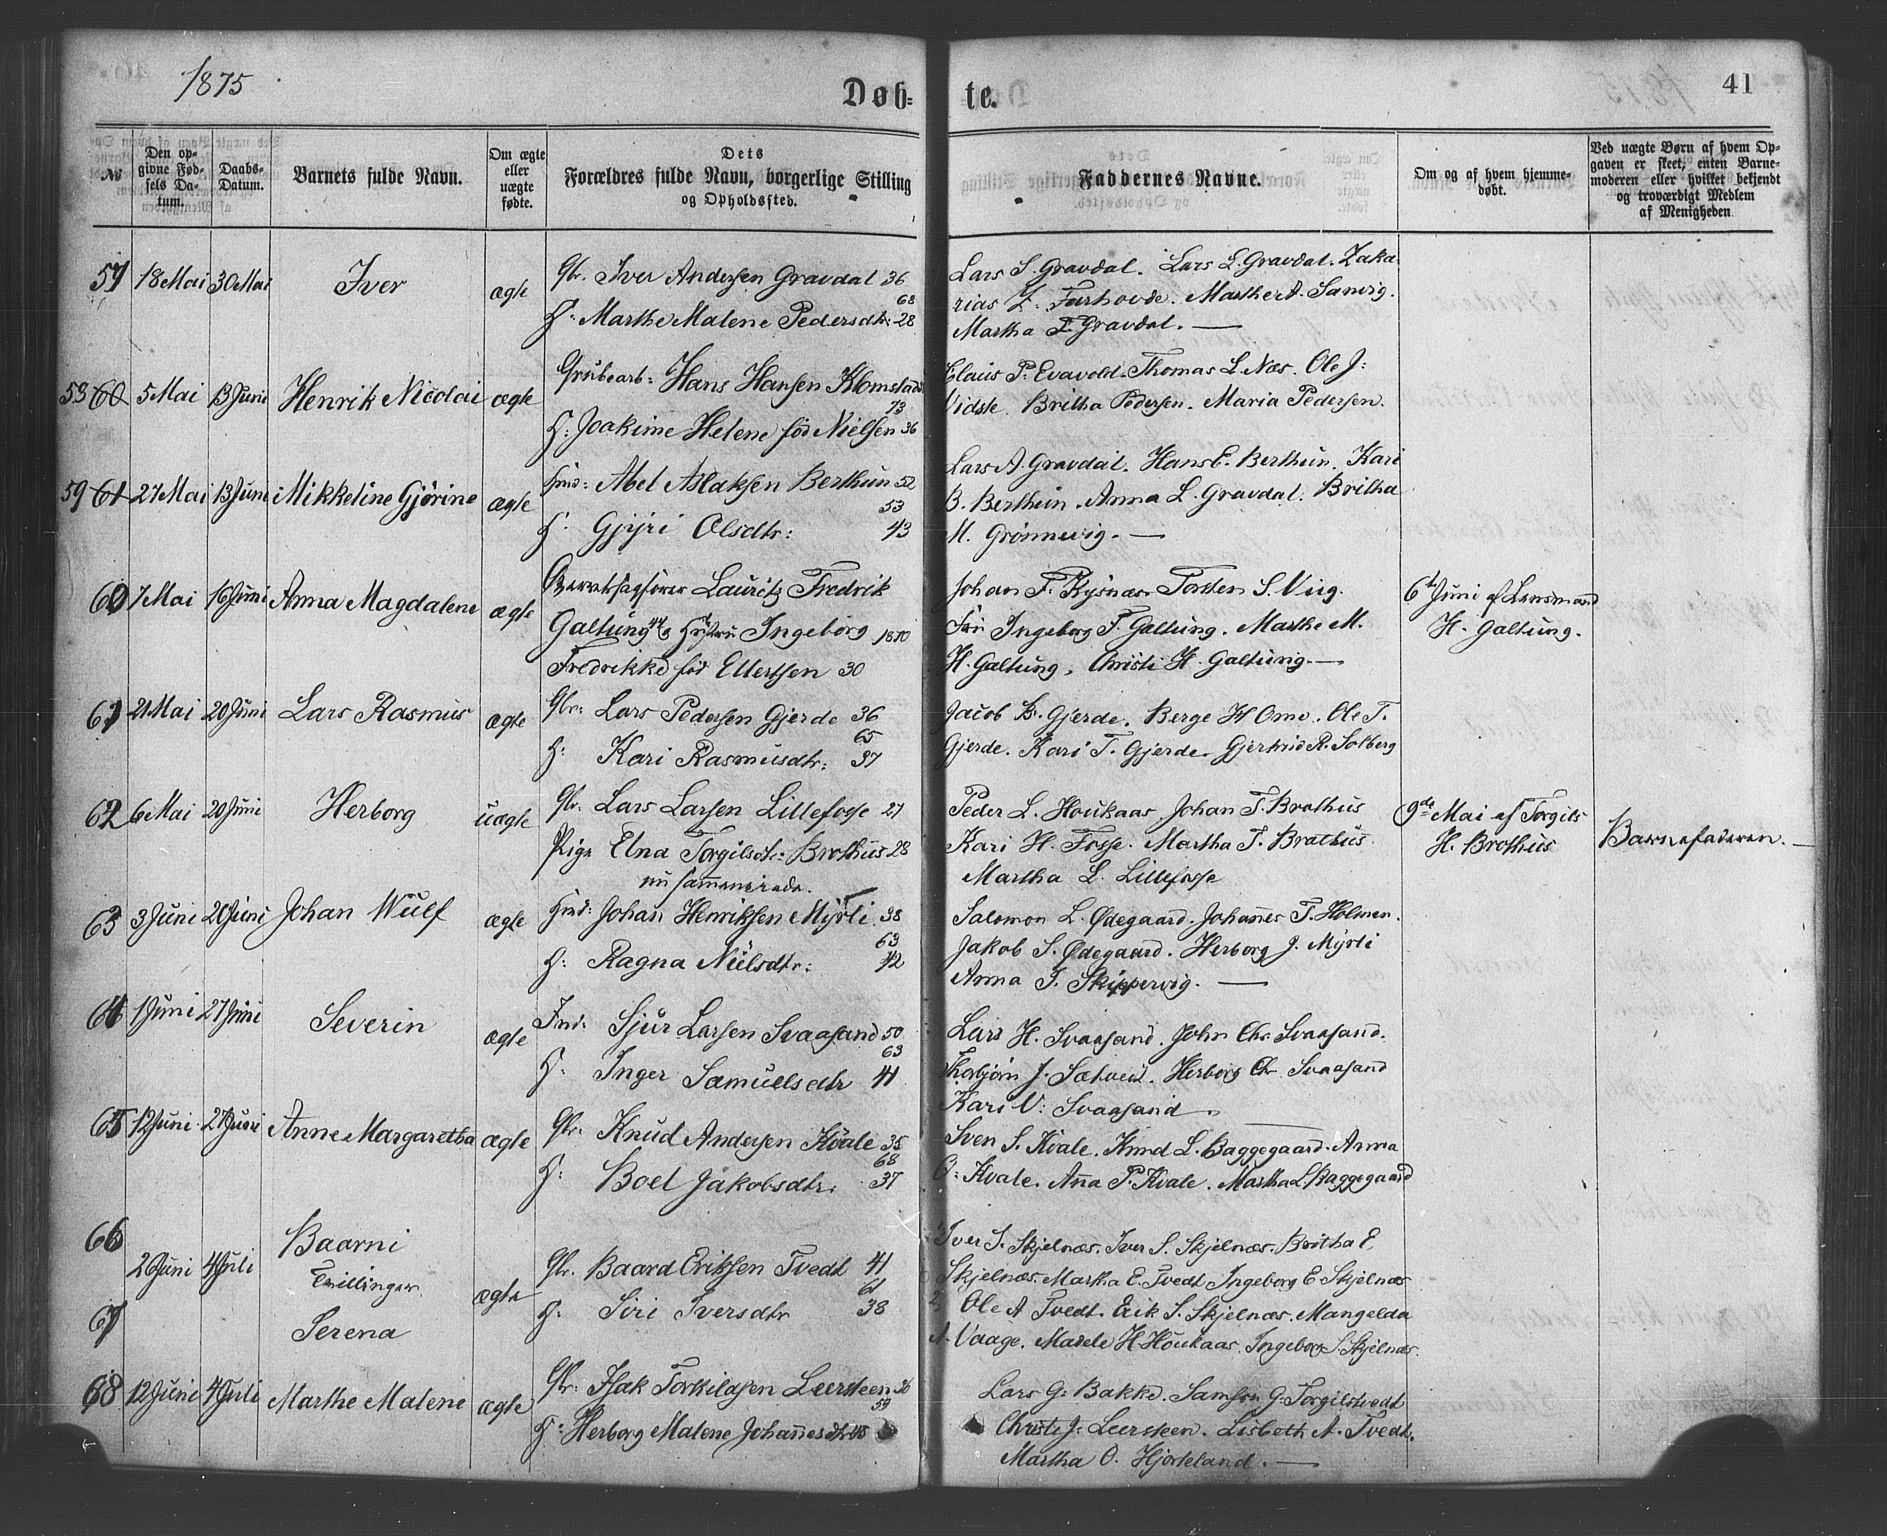 1875
Døb=
te.
41
№
Den op-
givne Fød-
sels Da-
tum.
Daabs-
Datum.
Barnets fulde Navn.
Om ægte
eller
uægte
fødte.
Dets
Forældres fulde Navn, borgerlige Stilling
og Opholdssted.
Faddernes Navne.
Om og af hvem hjemme-
døbt.
Ved uægte Børn af hvem Op-
gaven er skeet, enten Barne-
moderen eller hvilket bekjendt
og troværdigt Medlem
af Menigheden.
57 18 Mai 30 Mai Iver ægte
Gbr. Iver Andersen Gravdal 36
68
H: Marthe Malene Pedersdtr: 28
Lars S. Gravdal. Lars L. Gravdal. Zaka-
rias Z. Farhovde. Marthe A. Sanvig.
Martha T. Gravdal. —
60 5 Mai 13 Juni Henrik Nicolai ægte
Grubearb: Hans Hansen Klomstad
73
H: Joakime Helene fød Nielsen 36
Claus P. Evavold. Thomas L. Næs. Ole J:
Vidste. Britha Pedersen. Maria Pedersen.
59 61 27 Mai 13 Juni Mikkeline Gjørine ægte
Hmd: Abel Aslaksen Berthun 52
53
H. Gjyri Olsdtr: 43
Lars A. Gravdal. Hans E. Berthun. Kari
B. Berthun. Anna L. Gravdal. Britha
M. Grønnevig. —
60 7 Mai 16 Juni Anna Magdalene ægte
Overretssagfører Lauritz Fredrik
Galtung 44 og Hustru Ingeborg 1870
Fredrikke fød Ellertsen 30
Johan F. Rysnæs. Torsten S. Viig.
Frú Ingeborg F. Galtung. Marthe M.
H. Galtung, Christi H. Galtung. —
6te Juni af Lensmand
H. Galtung.
61 21 Mai 20 Juni Lars Rasmus ægte
Gbr: Lars Pedersen Gjerde 36
65
H: Kari Rasmusdtr: 37
Jacob B. Gjerde. Berge H Ome. Ole T.
Gjerde. Kari T. Gjerde. Gjertrud R. Solberg
62 6 Mai 20 Juni Herborg uægte
Gbr. Lars Larsen Lillefosse 27
Pige Elna Torgilsdtr: Brothus 28
nu sammenviede.
Peder L. Houkaas. Johan T. Brathus
Kari H. Fosse. Martha T. Brathus
Martha L. Lillefosse
9de Mai af Torgils
H. Brothus
Barnefaderen. —
63 3 Juni 20 Juni Johan Wulf ægte
Hmd: Johan Henriksen Myrli. 38
63
H: Ragna Nielsdtr: 42
Salomon L. Ødegaard. Johannes T. Holmen.
Jakob S. Ødegaard. Herborg J. Myrli
Anna T. Skippervig. —
64 1 Juni 27 Juni Severin ægte
Ind: Sjur Larsen Svaasand 50
63
H: Inger Samuelsdtr 41
Lars H. Svaasand. John Chr Svaasand.
Thorbjørn J. Sætveit. Herborg Chr Svaasand
Kari V: Svaasand.
65 12 Juni 27 Juni Anne Margaretha ægte
Gbr. Knud Andersen Kvale 35
68
H: Boel Jakobsdtr. 37
Sven S. Kvale. Knud L. Baggegaard. Anna
O: Kvale. Anna P. Kvale. Martha L. Baggegaard
66
Baarni
2 Juni 4 Juli
Tvillinger
ægte
67
Serena
Gbr. Baard Eriksen Tvedt 41
61
H: Siri Iversdtr 38
Iver S. Skjelnæs. Iver S. Skjelnæs. Britha E.
Skjelnæs. Martha E. Tvedt Ingeborg E. Skjelnæs
2 Ole A Tvedt. Erik S. Skjelnæs. Mangelda
A. Vaage. Marele H. Houkaas. Ingeborg S. Skjelnæs.
68 12 Juni 4 Juli Marthe Malene ægte
Gbr: Isak Torkilasen Leersteen 36
59
H: Herborg Malene Johannesdtr 45
Lars G. Bakke. Samson G. Torgilstvedt
Christi J. Leersteen. Lisbeth A. Tvedt.
Martha O. Hjorteland. —